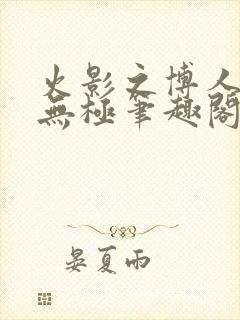 火影之博人
無極筆趣閣
晏夏雨